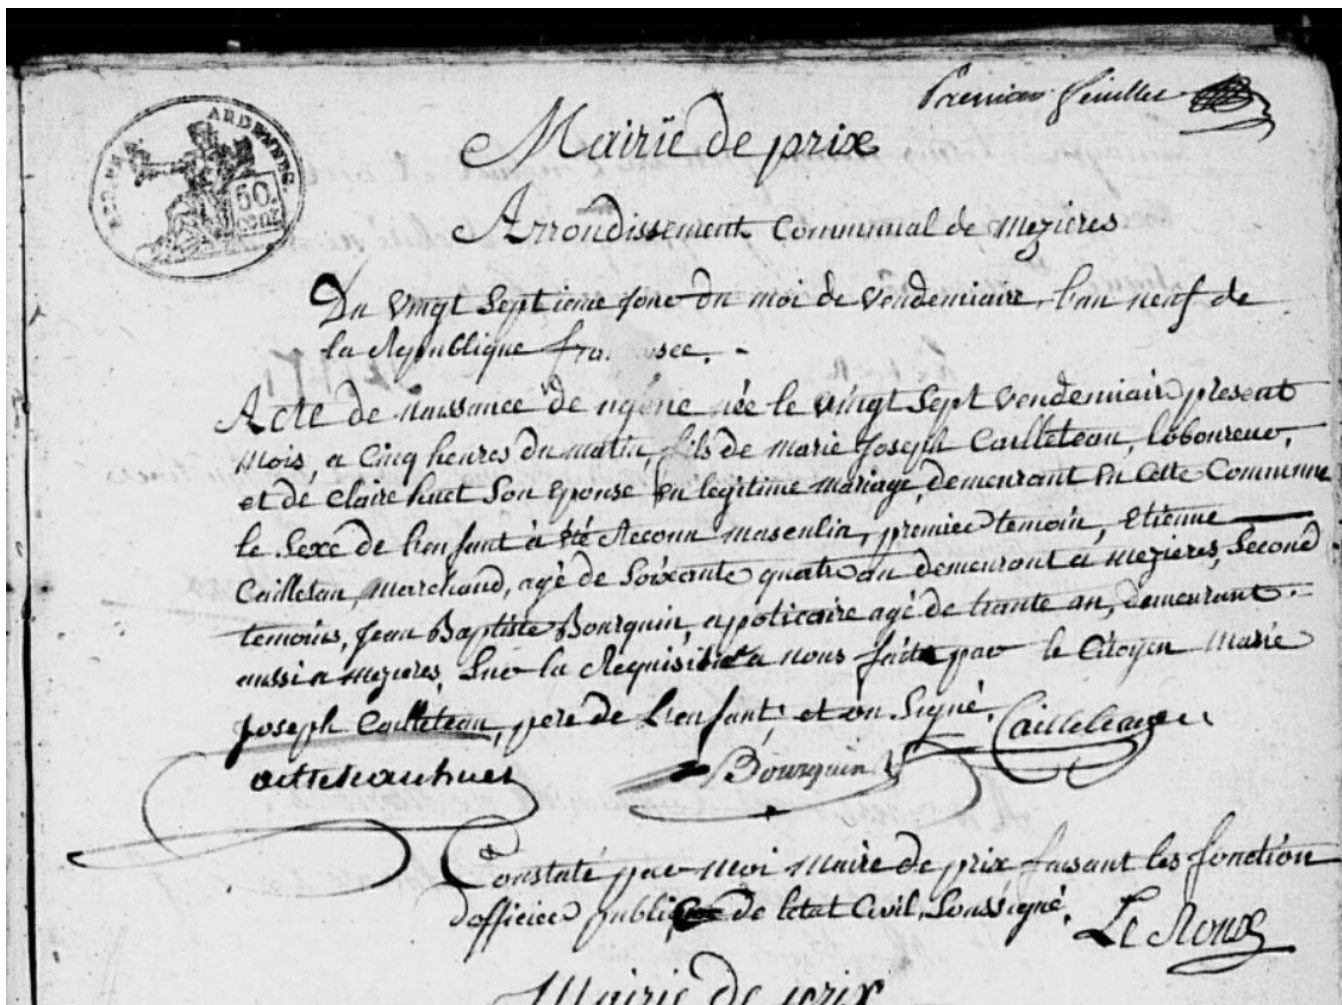 Premier feuillet
ARDENNES.
50.
CENT
Mairie de prix
Arrondissement Communal de Mezieres
Du vingt septieme jour du moi de vendemiaire, l'an neuf de
la Republique
Acte de naissance de née le vingt sept vendemiair present
mois, a cinq heures du matin, fils de marie Joseph Cailleteau, laboureur,
et de Claire huet son Epouse en legitime mariage, demeurant en cette Commune
le sexe de l'enfant à été Reconu masculin, premier temoin, Etienne
Cailletau, marchand, agé de soixante quatre an demeurant a mezieres, second
temoins, Jean Baptiste Bourquin, appoticaire agé de trante an, demeurant
aussi a mezieres, sur la Requisis a nous faite par le Citoyen Marie
Joseph Cailleteau, pere de l'enfant, et on signé.
Cailleteau
Bourquin
Constaté par moi maire de prix faisant les fonction
d'officier public de l'etat Civil, soussigné.
Le Roux
Mairie de prix